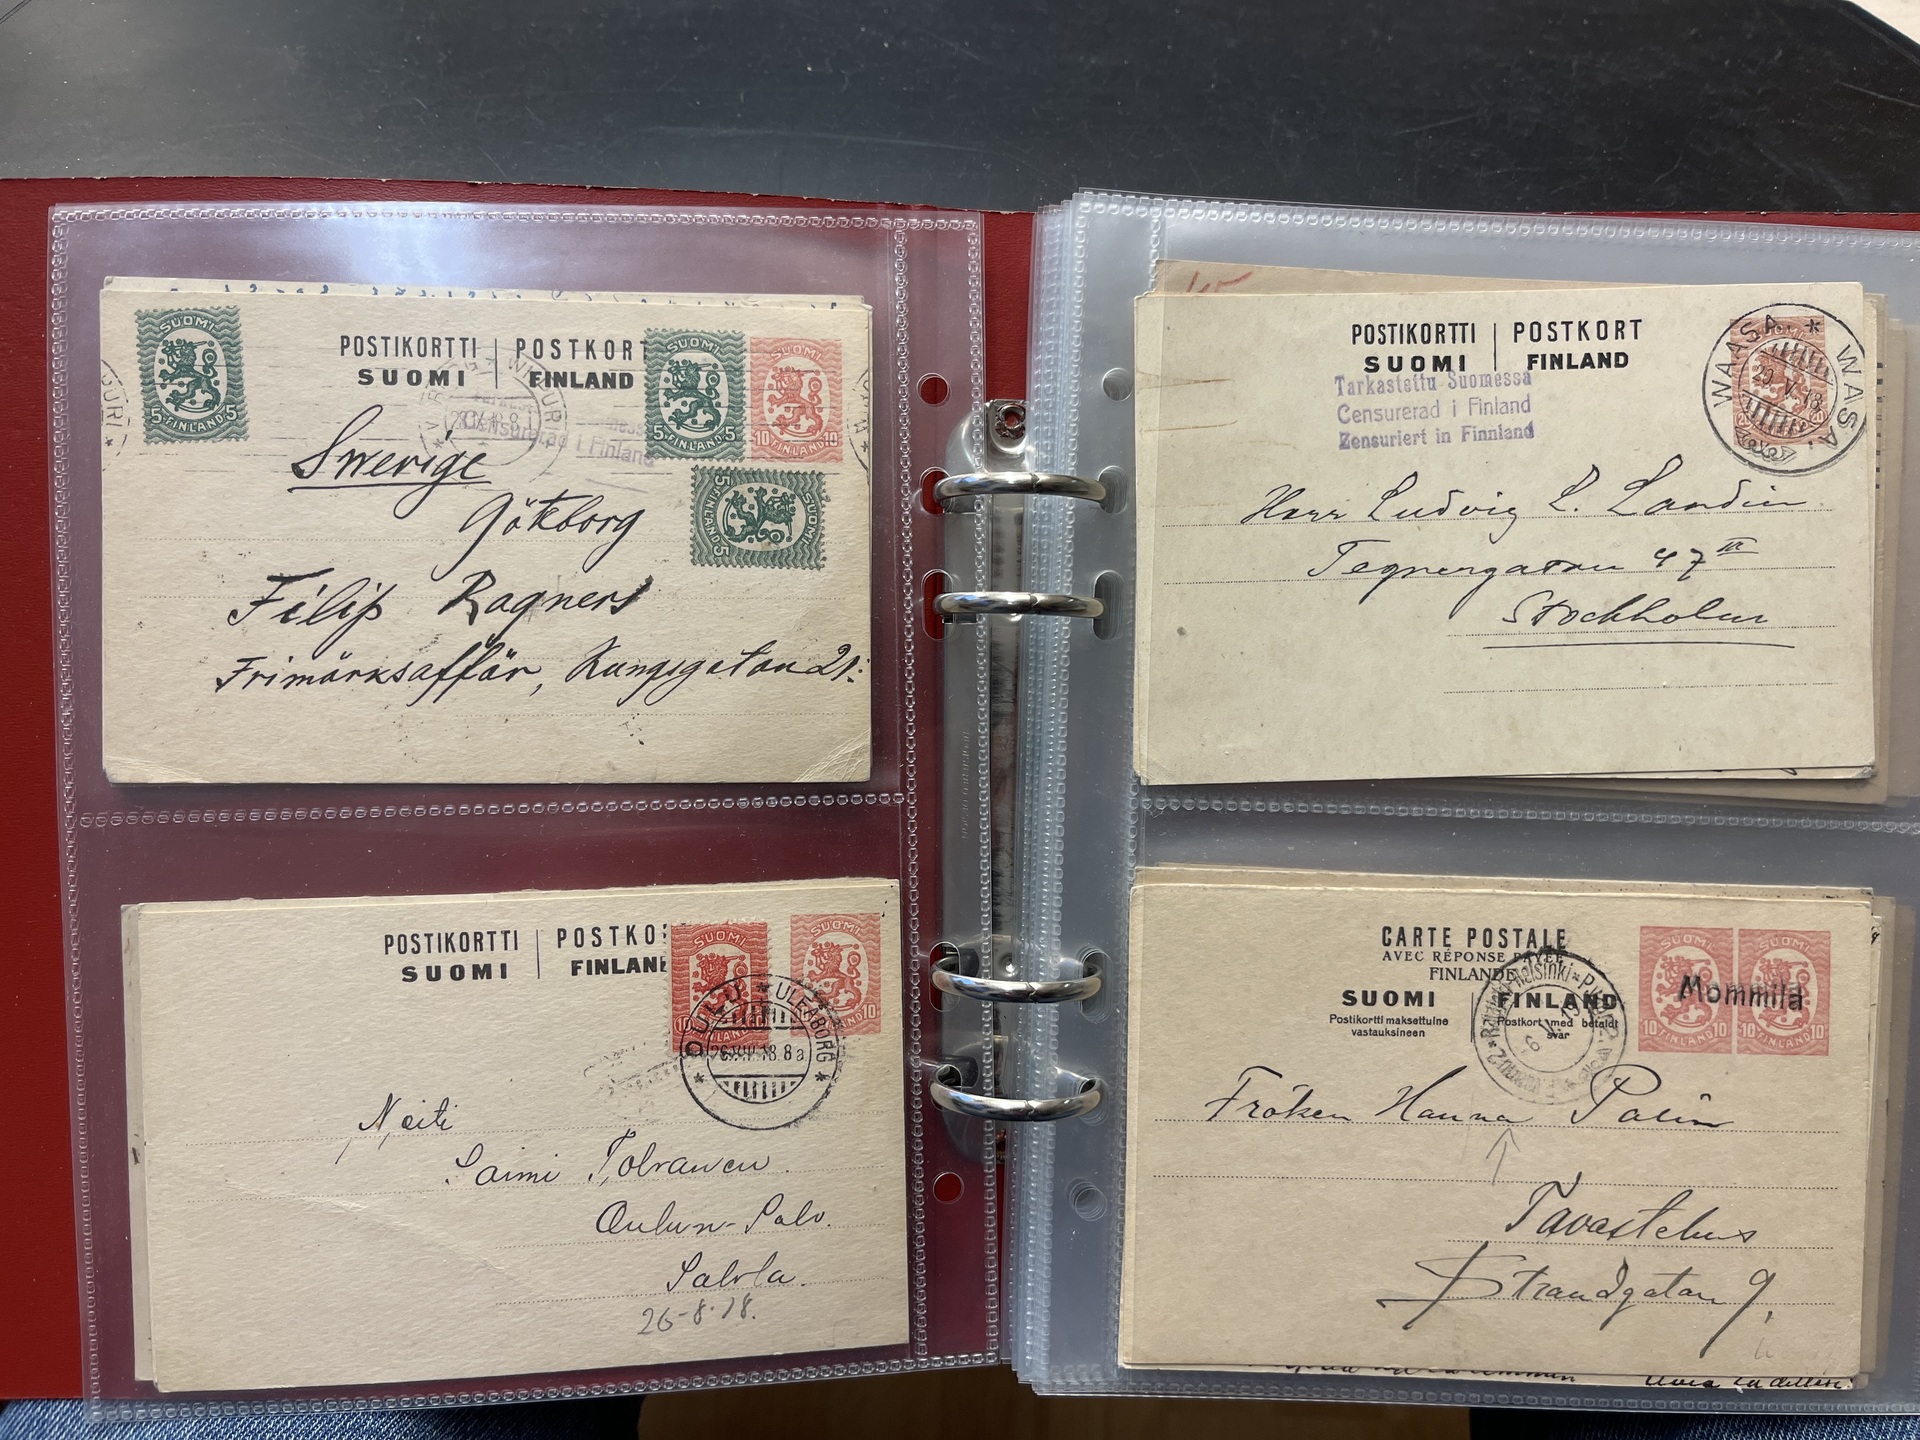 POSTIKORTTI | POSTKORT
SUOMI | FINLAND
SUOMI
5 5
FINLAND
SUOMI
5 5
FINLAND
SUOMI
10 10
FINLAND
SUOMI
5 5
FINLAND
Censurerad i Finland
Sverige
Göteborg
Filip Ragners
Frimärksaffär, Kungsgatan 21.
POSTIKORTTI | POSTKORT
SUOMI | FINLAND
WAASA * WASA
Tarkastettu Suomessa
Censurerad i Finland
Zensuriert in Finnland
Herr Ludvig L. Landin
Tegnergatan 47 III
Stockholm
POSTIKORTTI | POSTKO
SUOMI | FINLAN
SUOMI
10
SUOMI
10
OULU * ULEÅBORG
26.VIII.18.8a
Neiti
Saimi Tolvanen
Oulun-Salo.
Salola.
26-8-18.
CARTE POSTALE
AVEC RÉPONSE PAYÉE
FINLANDE
SUOMI | FINLAND
Postikortti maksettuine | Postkort med betaldt
vastauksineen | svar
SUOMI SUOMI
Mommila
10 FINLAND 10 10 FINLAND 10
Fröken Hanna Palin
Tavastehus
Strandgatan 9.